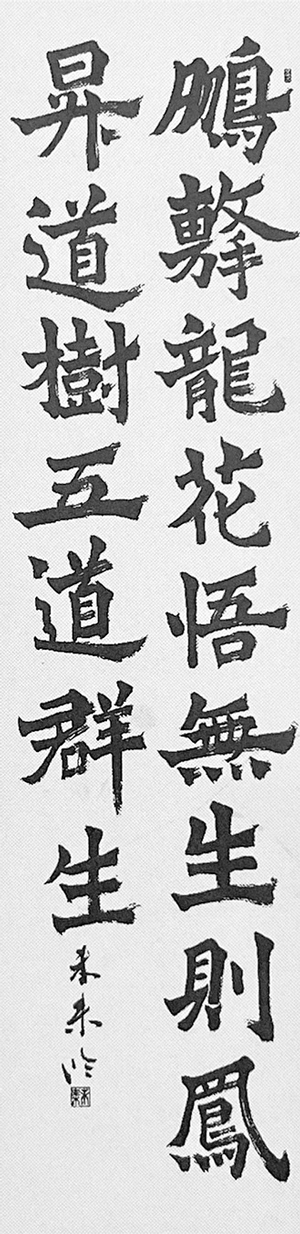 鵬擊龍花悟無生則鳳
昇道樹五道群生